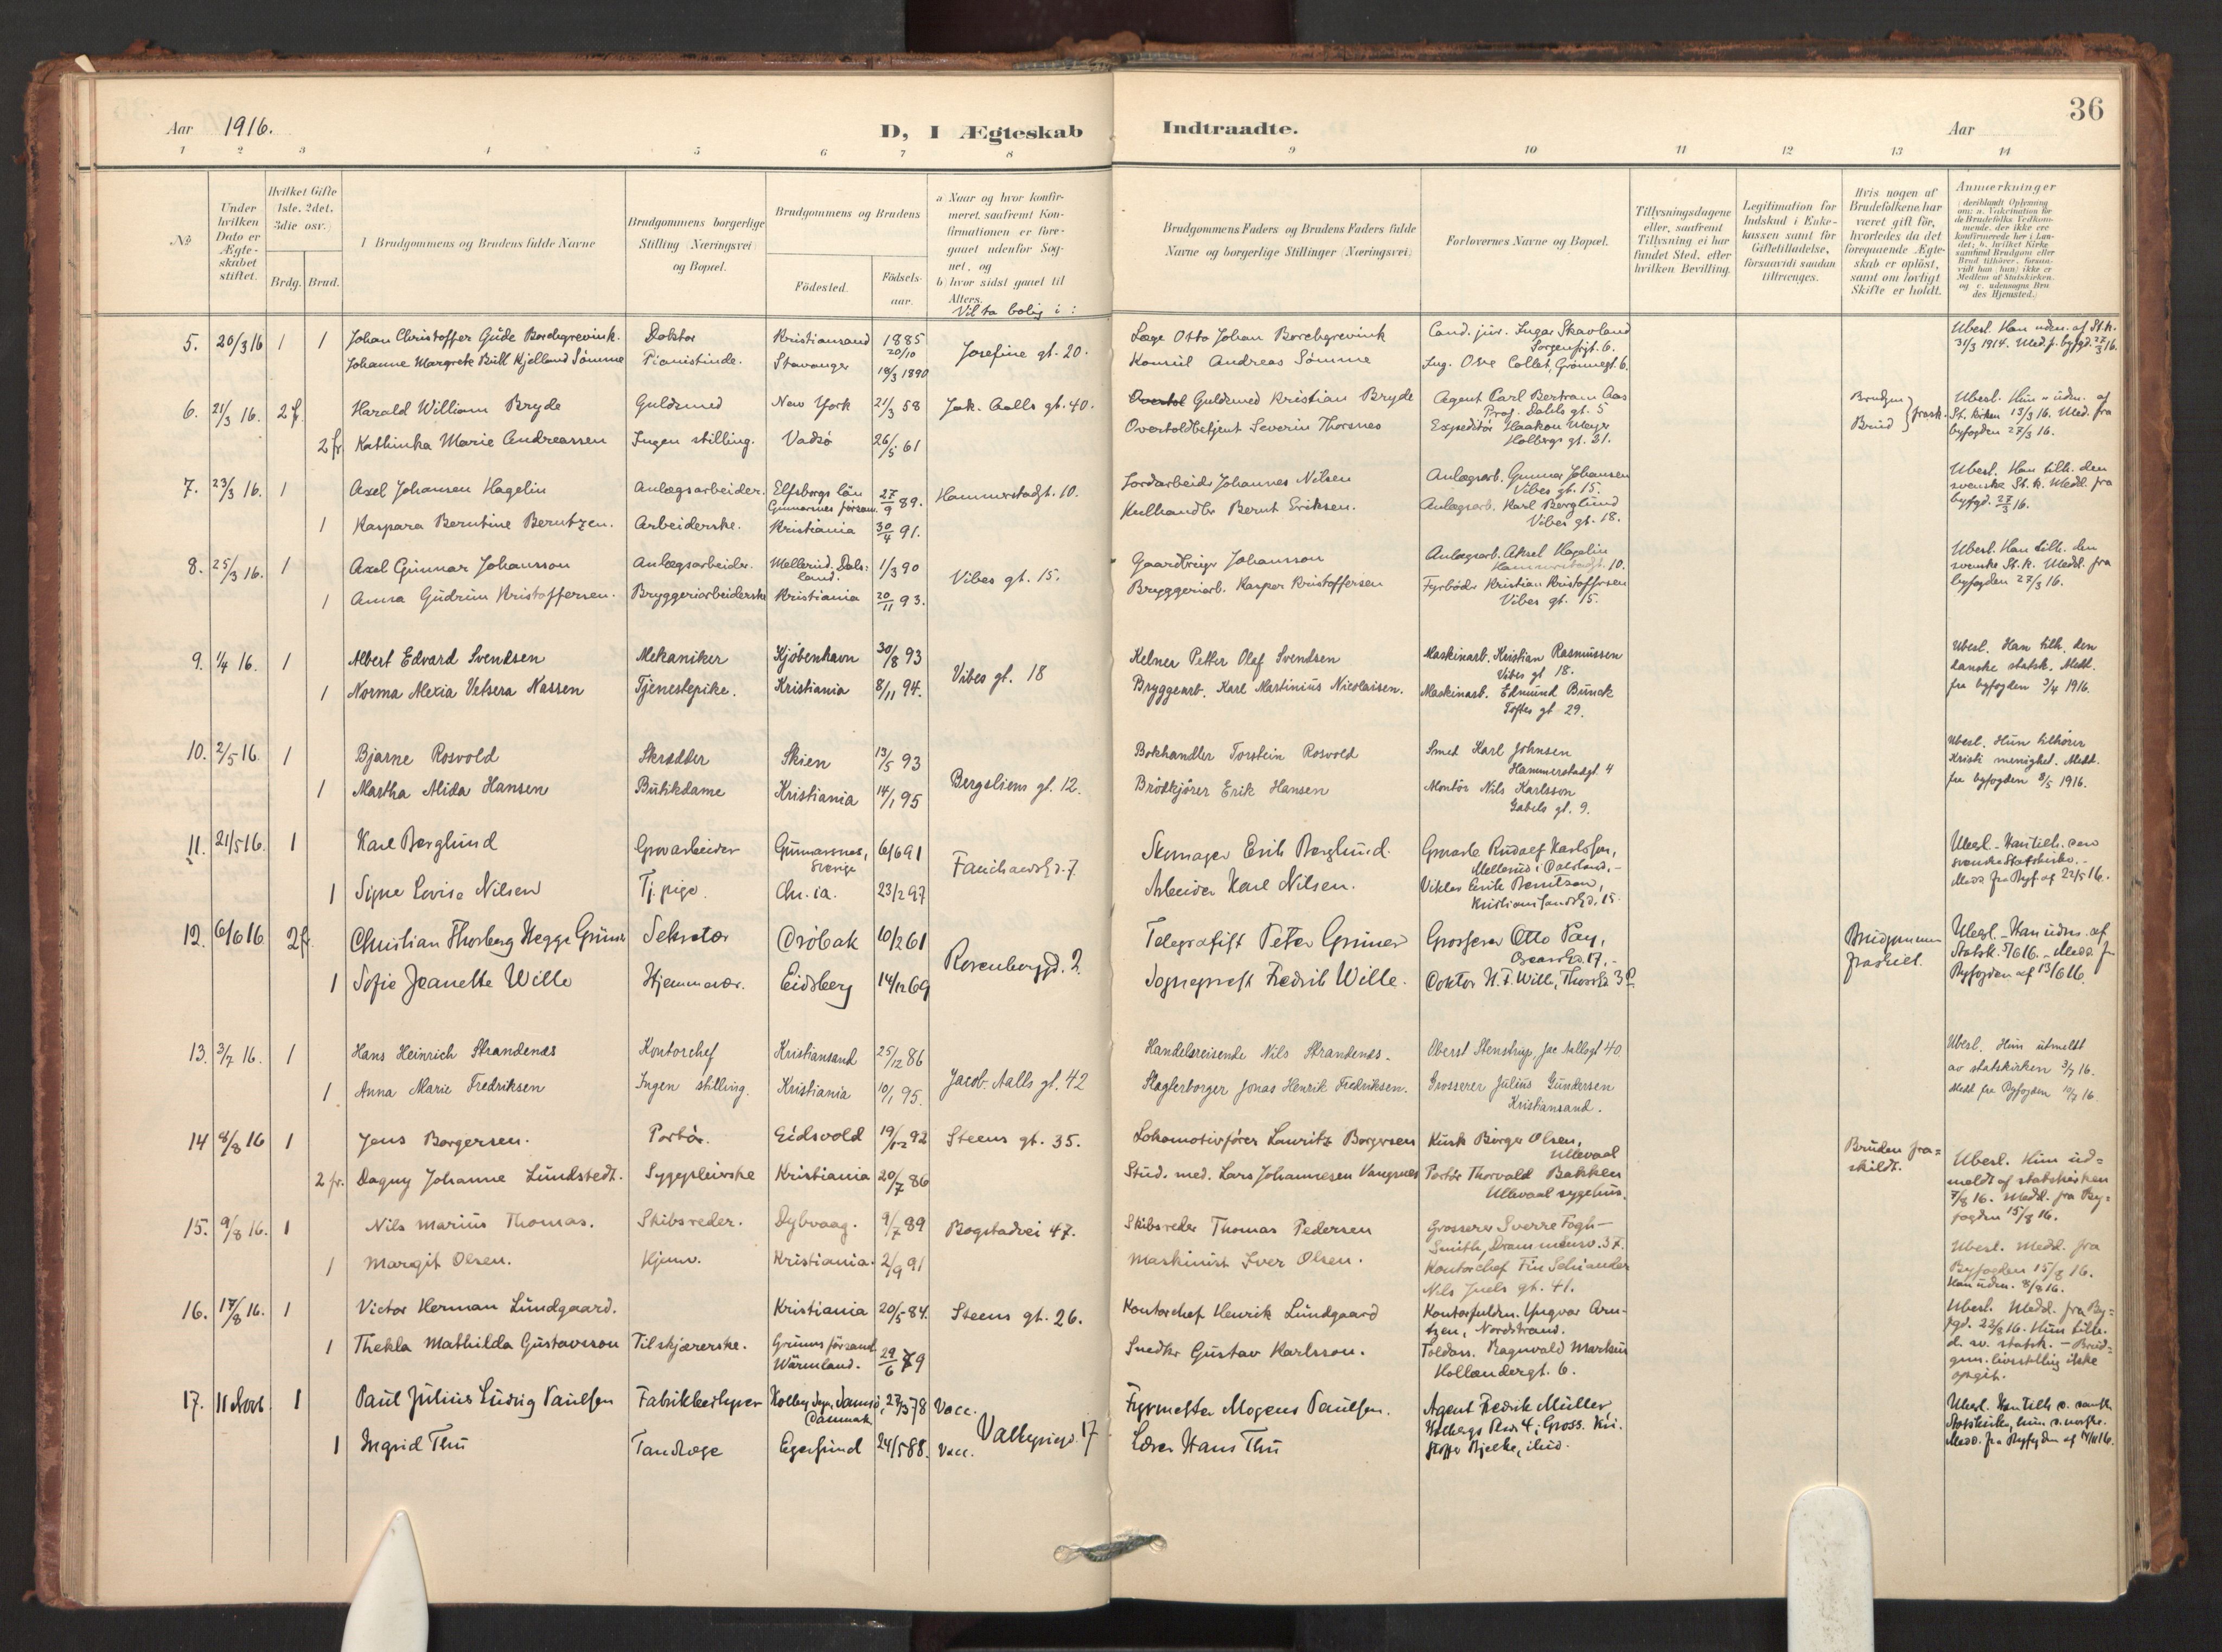 36
Aar 1916.
D, I Ægteskab Indtraadte.
Aar
1 2 3 4 5 6 7 8 9 10 11 12 13 14
No
Under hvilken Dato er Ægteskabet stiftet.
Hvilket Gifte 1ste, 2det, 3die osv.
Brdg. Brud.
Brudgommens og Brudens fulde Navne
Brudgommens borgerlige Stilling (Næringsvei) og Bopæl.
Brudgommens og Brudens
Födested.
Födselsaar.
a Naar og hvor konfirmeret, saafremt Konfirmationen er foregaaet udenfor Sognet, og
b) hvor sidst gaaet til Alters.
Vil ta bolig i :
Brudgommens Faders og Brudens Faders fulde Navne og borgerlige Stillinger (Næringsvei)
Forlovernes Navne og Bopæl.
Tillysningsdagene eller, saafremt Tillysning ei har fundet Sted, efter hvilken Bevilling.
Legitimation for Indskud i Enkekassen samt for Giftetilladelse, forsaavidt saadan tiltrænges.
Hvis nogen af Brudefolkene har været gift før, hvorledes da det foregaaende Ægteskab er oplöst, samt om lovligt Skifte er holdt.
Anmærkninger
5. 20/3 16 1 1 Johan Christoffer Gude Borchgrevink. Doktor Kristiansand 1885 20/10 Josefine gt. 20. Læge Otto Johan Borchgrevink Cand. jur. Ingar Skavland Sorgenfrigt. 6. Ubesl. Han uden. af St.k. 31/3 1914. Med. f. byfgd. 27/3 16.
Johanne Margrete Bull Kjelland Sömme Pianistinde. Stavanger 18/3 1890 Konsul Andreas Sömme Ing. Ove Collet, Grönnegt. 6.
6. 21/3 16. 2 f. Harald William Bryde Guldsmed New York 21/3 58 Jak. Aalls gt. 40. Guldsmed Kristian Bryde Agent Carl Bertram Aas Prof. Dahls gt. 5 Brudgm Brud } frask. Ubesl. Hun uden. af St. kirken 13/3 16. Med. fra byfogden 27/3 16.
2 fr Kathinka Marie Andreassen Ingen stilling. Vadsö 26/5 61 Overtoldbetjent Severin Thorsnes Expeditör Haakon Meyer Holbergs gt. 21.
7. 23/3 16. 1 Axel Johansen Hagelin Anlægsarbeider. Elfsborgs län Gunnarsnes församl. 27/9 89. Hammerstadgt. 10. Jordarbeider Johannes Nilsen Anlægsarb. Gunnar Johansen Vibes gt. 15. Ubesl. Han tilh. den svenske St.k. Medd. fra byfgd. 27/3 16.
1 Kaspara Berntine Berntzen. Arbeiderske. Kristiania 30/4 91. Kulhandler Bernt Eriksen. Anlægsarb. Karl Berglund Vibes gt. 18.
8. 25/3 16. 1 Axel Gunnar Johansson Anlægsarbeider. Mellerud. Dalsland. 1/3 90 Vibes gt. 15. Gaardbruger Johansson Anlægsarb. Aksel Hagelin Hammerstadgt. 10. Ubesl. Han tilh. den svenske St.k. Medd. fra byfogden 27/3 16.
1 Anna Gudrun Kristoffersen. Bryggeriarbeiderske Kristiania 20/11 93. Bryggeriarb. Kasper Kristoffersen Fyrböder Kristian Kristoffersen Vibes gt. 15.
9. 1/4 16. 1 Albert Edvard Svendsen Mekaniker Kjöbenhavn 30/8 93 Vibes gt. 18 Kelner Petter Olaf Svendsen Maskinarb. Kristian Rasmussen Vibes gt 18. Ubesl. Han tilh. den danske statsk. Medd. fra byfogden 3/4 1916.
1 Norma Alexia Vetsera Nassen Tjenestepike. Kristiania 8/11 94. Bryggearb. Karl Martinius Nicolaisen. Maskinarb. Edmund Bunck Toftes gt 29.
10. 2/5 16 1 Bjarne Rosvold Skrædder Skien 13/5 93 Bergsliens gt. 12. Bokhandler Torstein Rosvold Smed Karl Johnsen Hammerstadgt. 4 Ubesl. Hun tilhører Kristi menighet. Medd. fra byfogden 8/5 1916.
1 Martha Alida Hansen Butikdame Kristiania 14/1 95 Brödkjörer Erik Hansen Montör Nils Karlsson Gabels gt. 9.
11. 21/5 16. 1 Karl Berglund Grovarbeider Gunnarsnes, Sverige 6/6 91 Fauchaldsgd. 7. Skomager Erik Berglund. Grovarb. Rudolf Karlsson, Mellerud i Dalsland. Ubesl. Han tilh. den svenske Statskirke. Medd. fra Byf. af 22/5 16.
1 Signe Lovise Nilsen Tj. pige. Chr.ia. 23/2 97 Arbeider Karl Nilsen. Viktor Emil Berntsen, Kristiansandsgd. 15.
12. 6/6 16 2 f. Christian Thorberg Hegge Grüner Sekretær Dröbak 10/2 61 Rosenborggd. 2. Telegrafist Peter Grüner Grosserer Otto Pay, Oscarsgd. 17. Brudgommen fraskilt. Ubesl. Han udm. af Statsk. 5/6 16. Medd. fr Byfogden af 13/6 16.
1 Sofie Jeanette Wille Hjemmevær. Eidsberg 14/12 69 Sogneprest Fredrik Wille. Doktor N. F. Wille,
13. 3/7 16. 1 Hans Heinrich Strandenæs Kontorchef Kristiansand 25/12 86 Jacob Aalls gt. 42 Handelsreisende Nils Strandenæs. Oberst Stenstrup, Jac Aallsgt 40 Ubesl. Hun utmeldt av statskirken 3/7 16. Medd fra Byfogden 10/7 16.
1 Anna Marie Fredriksen Ingen stilling. Kristiania 10/1 95. Slagterborger Jonas Henrik Fredriksen. Grosserer Julius Gundersen Kristiansand.
14 8/8 16 1 Jens Borgersen. Portör. Eidsvold 19/12 92 Steens gt. 35. Lokomotivförer Lauritz Borgersen Kusk Borger Olsen, Ullevaal Bruden fraskildt. Ubesl. Hun udmeldt af statskirken 7/8 16. Medd. fra Byfogden 15/8 16.
2 fr. Dagny Johanne Lundstedt. Sygepleierske Kristiania 20/7 86 Stud. med. Lars Johannesen Vangsnes Portör Thorvald Bakken Ullevaal sygehus.
15. 9/8 16. 1 Nils Marius Thomas. Skibsreder. Dybvaag. 9/7 89 Bogstadvei 47. Skibsreder Thomas Pedersen Grosserer Sverre Fogh-Smith, Drammensv. 37. Ubesl. Medd. fra Byfogden 15/8 16. Han uden. 8/8 16.
1 Margit Olsen. Hjemv. Kristiania. 2/9 91 Maskinist Iver Olsen. Kontorchef Fin Schiander Nils Juels gt. 41.
16. 17/8 16. 1 Victor Herman Lundgaard. Kristiania 20/5 84. Steens gt. 26. Kontorchef Henrik Lundgaard Kontorfuldm. Yngvar Arntzen, Nordstrand. Ubesl. Medd. fra Byfgd. 22/8 16. Hun tilh. d. sv. statsk. - Brudgom. livsstilling ikke opgit.
1 Thekla Mathilda Gustavsson Tilskjærerske. Grums församl. Wärmland. 29/6 79 Snedker Gustav Karlsson. Toldass. Ragnvald Markus Hollendergt. 6.
17. 11 Novb. 1 Paul Julius Ludvig Paulsen Fabrikbestyrer Kolby Sogn, Samsö, Danmark 27/5 78 Vacc. Valkyriegd. 17 Fyrmester Mogens Paulsen. Agent Fredrik Müller Holbergs Plads 4; Gross. Kristoffer Bjelke, ibid. Ubesl. Han tilh. d. danske Statskirke, hun d. norske. Medd. fra Byfogden af 14/11 16.
1 Ingrid Thu Tandlæge Egersund 24/5 88. Vacc. Lærer Hans Thu